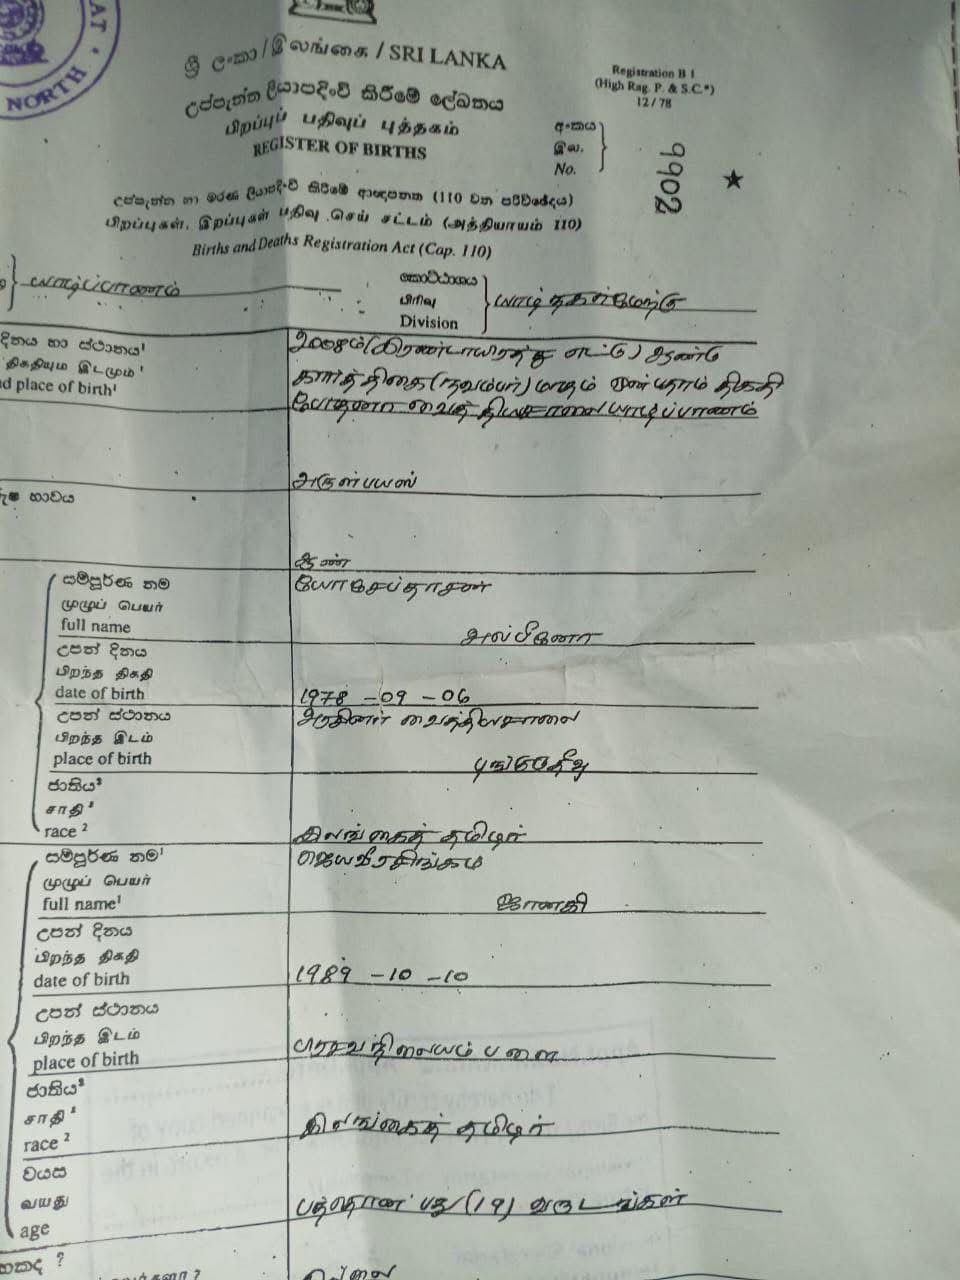 AT .
NORTH .
ශ්‍රී ලංකා / இலங்கை / SRI LANKA
Registration B 1
(High Rag. P. & S.C.*)
12 / 78
උප්පැන්න ලියාපදිංචි කිරීමේ ලේඛනය
பிறப்புப் பதிவுப் புத்தகம்
REGISTER OF BIRTHS
අංකය
இல.
No.
9902
★
උප්පැන්න හා මරණ ලියාපදිංචි කිරීමේ ආඥාපනත (110 වන පරිච්ඡේදය)
பிறப்புகள், இறப்புகள் பதிவு செய் சட்டம் (அத்தியாயம் 110)
Births and Deaths Registration Act (Cap. 110)
யாழ்ப்பாணம்
කොට්ඨාශය
பிரிவு
Division
யாழ் நகர்
දිනය හා ස්ථානය¹
திகதியும் இடமும்¹
nd place of birth¹
2008ம் (இரண்டாயிரத்து எட்டு) ஆண்டு
கார்த்திகை (நவம்பர்) மாதம் திகதி
போதனா வைத்தியசாலை யாழ்ப்பாணம்
அருள்பயஸ்
භාවය
ஆண்
සම්පූර්ණ නම
முழுப் பெயர்
full name
யோசேப்தாசன்
அல்பினோ
උපන් දිනය
பிறந்த திகதி
date of birth
1978 - 09 - 06
උපන් ස්ථානය
பிறந்த இடம்
place of birth
வைத்தியசாலை
புங்குடுதீவு
ජාතිය²
சாதி²
race ²
இலங்கைத் தமிழர்
සම්පූර්ණ නම¹
முழுப் பெயர்
full name¹
ஜெயவீரசிங்கம்
ஜானகி
උපන් දිනය
பிறந்த திகதி
date of birth
1989 - 10 - 10
උපන් ස්ථානය
பிறந்த இடம்
place of birth
பிரசவநிலையம் பளை
ජාතිය²
சாதி²
race ²
இலங்கைத் தமிழர்
වයස
வயது
age
பத்தொன்பது (19) வருடங்கள்
?
?
இல்லை